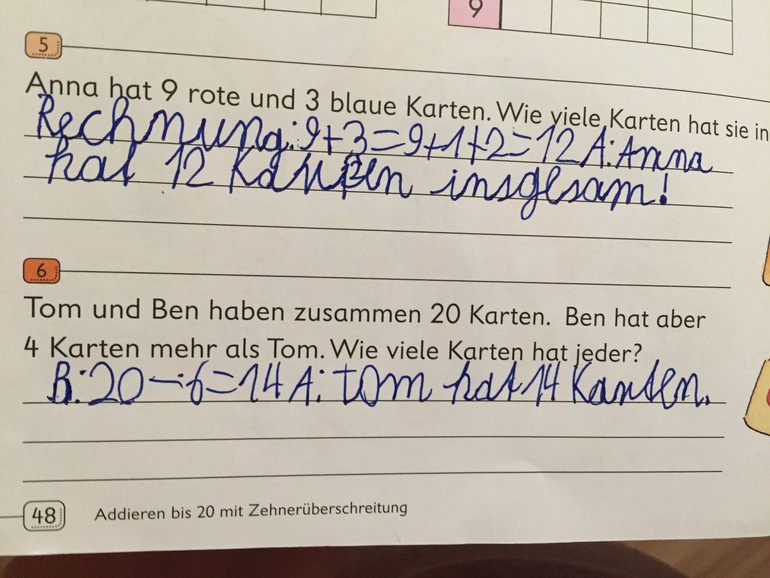 9
5
Anna hat 9 rote und 3 blaue Karten. Wie viele Karten hat sie in
Rechnung: 9+3=9+1+2=12 A: Anna
hat 12 Karten insgesam!
6
Tom und Ben haben zusammen 20 Karten. Ben hat aber
4 Karten mehr als Tom. Wie viele Karten hat jeder?
R: 20-6=14 A: tom hat 14 Karten.
48 Addieren bis 20 mit Zehnerüberschreitung